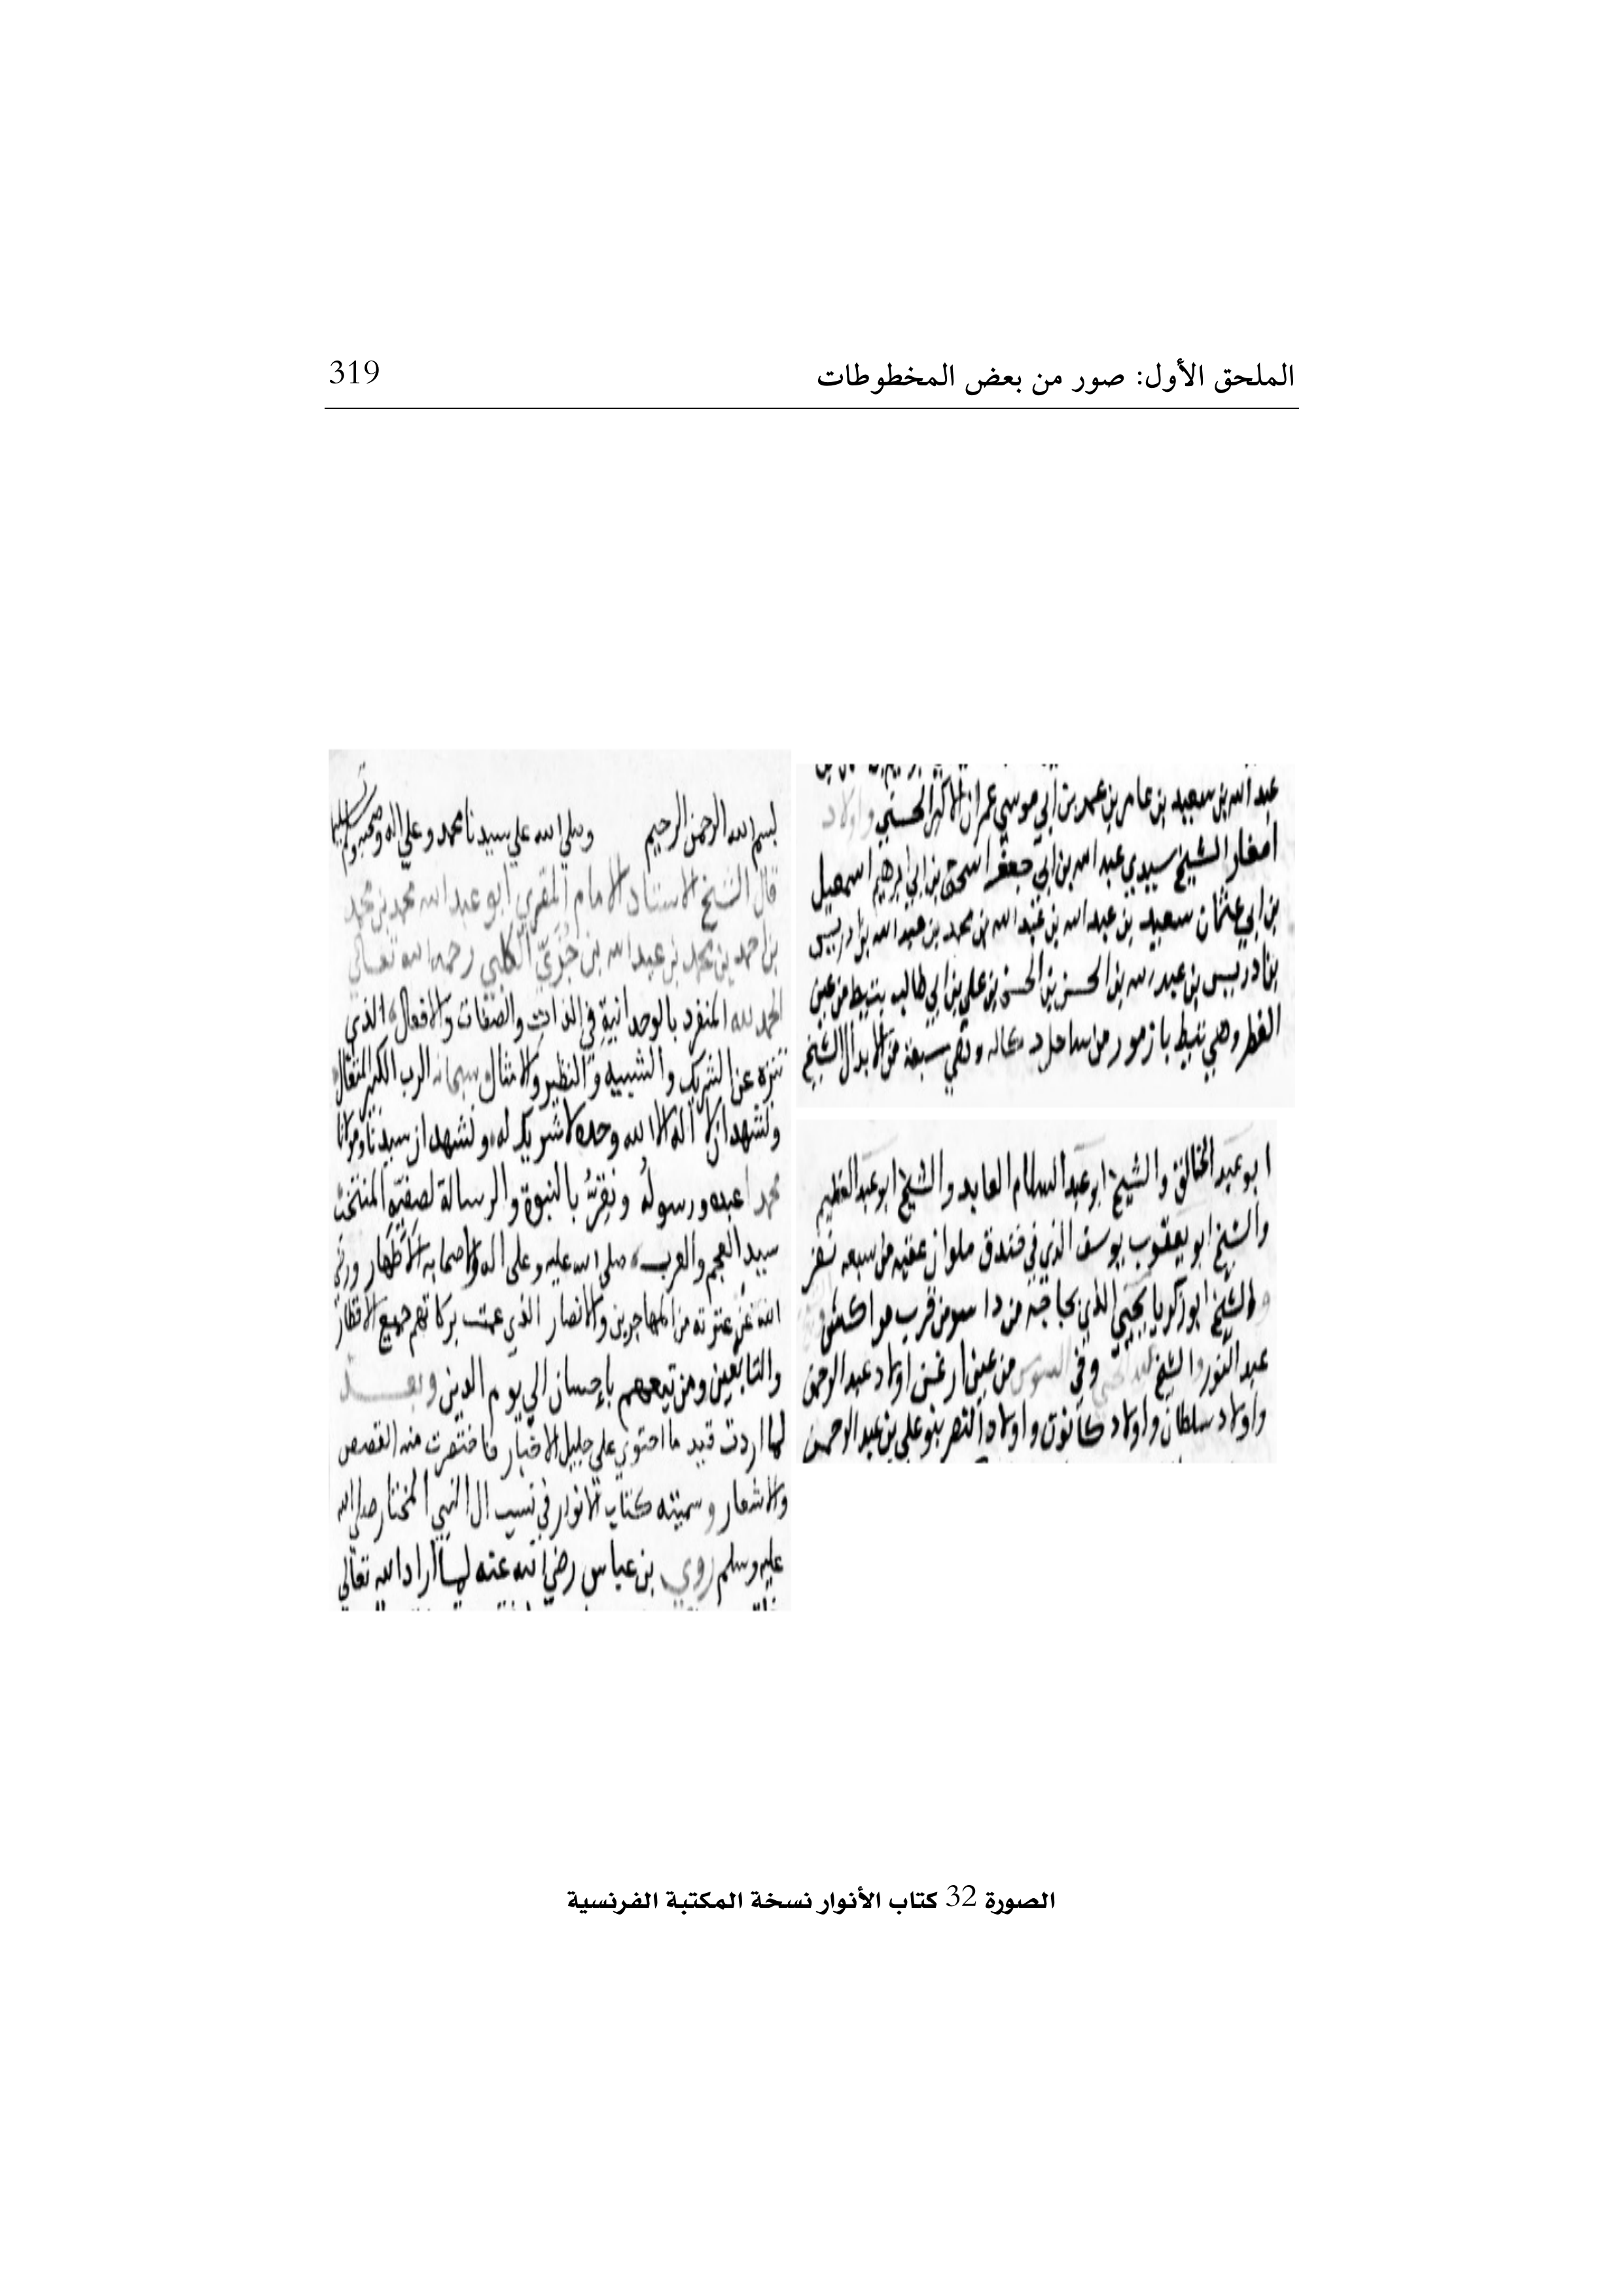 الملحق الأول: صور من بعض المخطوطات 319
عبد الله بن سعيد بن عامر بن عمر بن أبي موسي عمران الاكبر الحسني واولاد
امغار الشيخ سيدي عبد الله بن ابي جعفر اسحق بن ابي ابرهيم اسمعيل
بن ابي عثمان سعيد بن عبد الله بن عبد الله بن محمد بن عبد الله بن ادريس
بن ادريس بن عبد الله بن الحسن بن الحسن بن علي بن ابي طالب بتيط من عين
الفطر وهي بتيط بازمور من ساحل دكاله وهي سبعة من الابدال الشيخ
ابو عبد الخالق والشيخ ابو عبد السلام العابد والشيخ ابو عبد العظيم
والشيخ ابو يعقوب يوسف الذي في فندق ملوان عقبه من سبعه نفر
والشيخ ابو زكريا يحيي الذي من قرب مراكش
عبد النور والشيخ وفي السوس من عين اولاد عبد الرحمن
واولاد سلطان واولاد كانون واولاد النصر بنو علي بن عبد الرحمن
بسم الله الرحمن الرحيم وصلي الله علي سيدنا محمد وعلي اله وصحبه وسلم تسليما
قال الشيخ الاستاد الامام المقري ابو عبد الله محمد بن محمد
بن احمد بن محمد بن عبد الله بن جُزَيّ الكلبي رحمه الله تعالي
الحمد لله المنفرد بالوحدانية في الذات والصفات والافعال الذي
تنزه عن الشريك والشبيه والنظير والامثال سبحانه الرب الكبير المتعال
ونشهد ان لا اله الا الله وحده لا شريك له ونشهد ان سيدنا ومولانا
محمدا عبده ورسوله ونقر بالنبوة والرسالة لصفيه المنتخب
سيد العجم والعرب صلي الله عليه وعلي اله واصحابه الاطهار ورضي
الله عن عترته من المهاجرين والانصار الذي عمت بركاتهم جميع الاقطار
والتابعين ومن تبعهم باحسان الي يوم الدين وبعد
لما اردت قيد ما احتوي علي جليل الاخبار فاختصرت منه القصص
والاشعار وسميته كتاب الانوار في نسب ال النبي المختار صلي الله
عليه وسلم روي بن عباس رضي الله عنه لما اراد الله تعالي
الصورة 32 كتاب الأنوار نسخة المكتبة الفرنسية